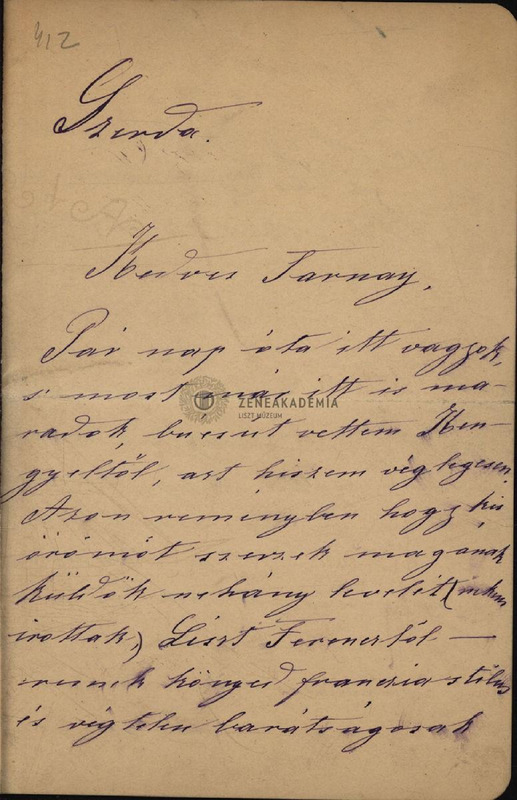 412
Szerda.
Kedves Tarnay,
Pár nap óta itt vagyok,
s most már itt is ma-
ZENEAKADÉMIA
LISZT MÚZEUM
radok, bucsut vettem Ken-
gyeltől, azt hiszem véglegesen.
Azon reményben hogy kis
örömöt szerzek magának
küldök nehány levelet (nekem
irottak,) Liszt Ferencztől —
remek könyed franczia stilus
és végtelen barátságosak